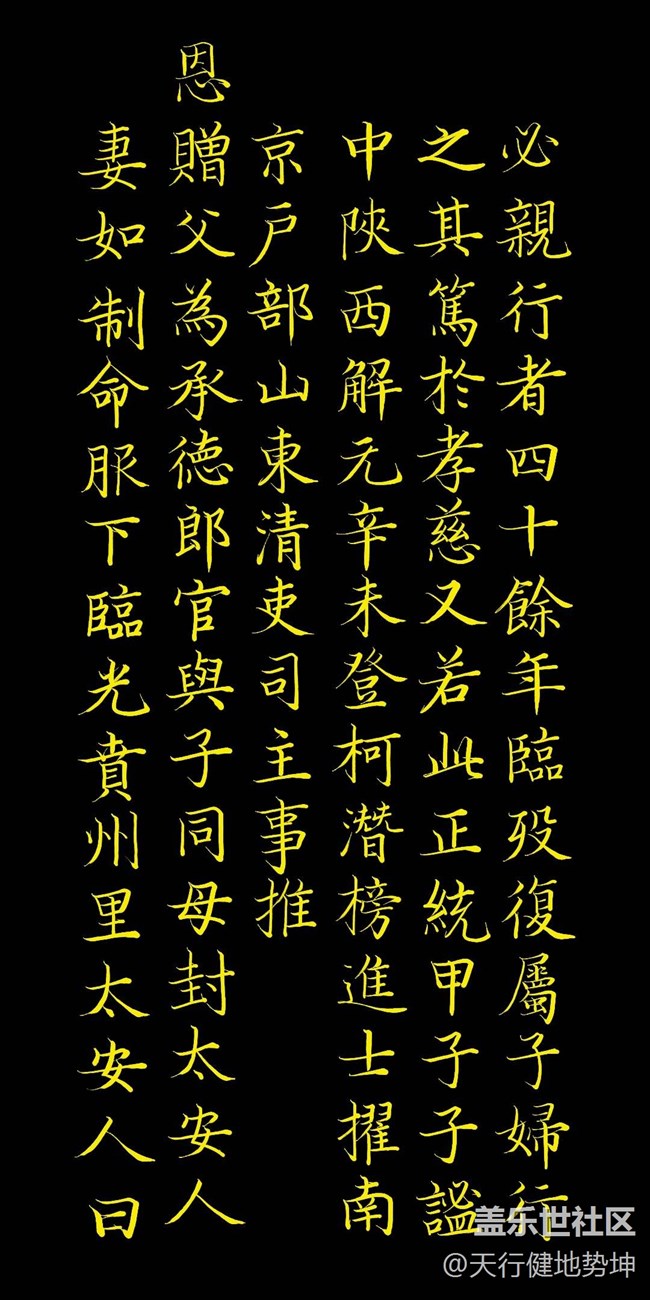 必親行者四十餘年臨歿復屬子婦行
之其篤於孝慈又若此正統甲子子謐
中陝西解元辛未登柯潛榜進士擢南
京戶部山東清吏司主事推
恩贈父為承德郎官與子同母封太安人
妻如制命服下臨光賁州里太安人曰
盖乐世社区
@天行健地势坤